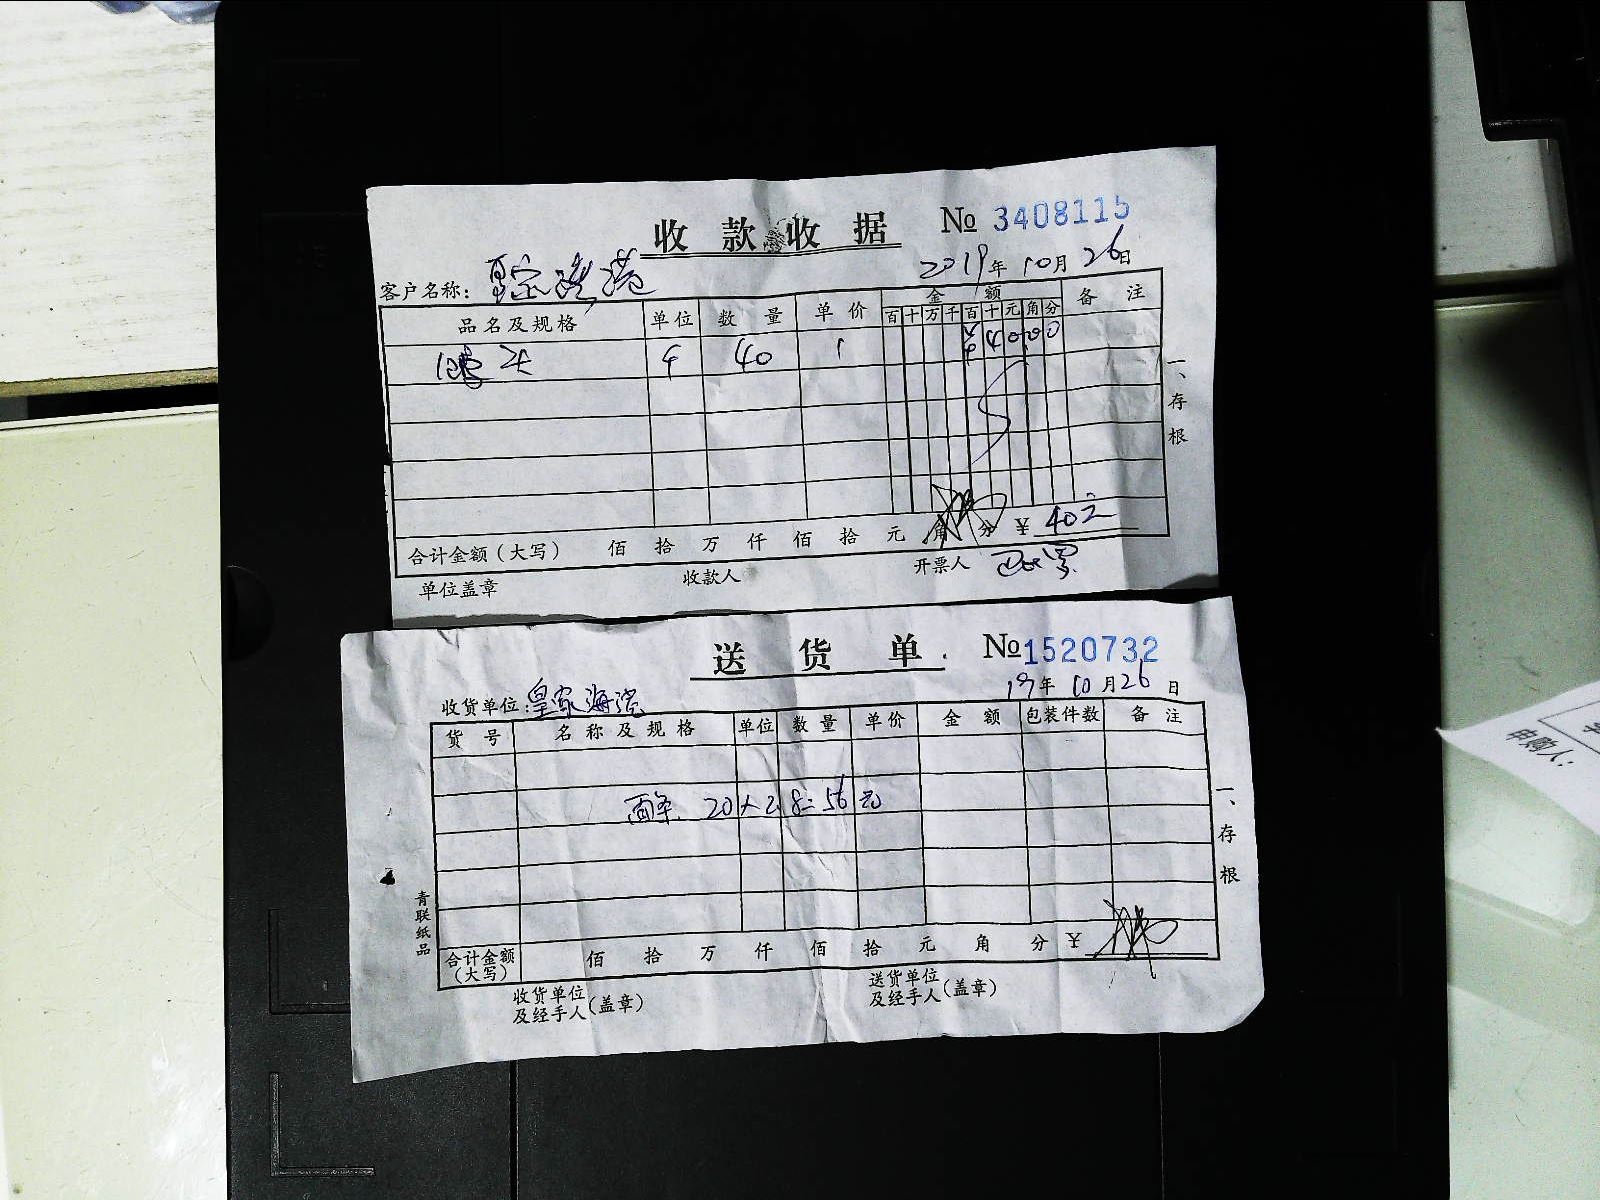 收款收据 № 3408115
2019年10月26日
客户名称:
品名及规格 单位 数量 单价 金额 备注
百十万千百十元角分
40 1 40 00
一、存根
合计金额(大写) 佰 拾 万 仟 佰 拾 元 角 分 ¥ 40元
单位盖章 收款人 开票人
送货单 №1520732
19年10月26日
收货单位:皇家海湾
货号 名称及规格 单位 数量 单价 金额 包装件数 备注
面条 20×2.8=56元
一、存根
青联纸品
合计金额(大写) 佰 拾 万 仟 佰 拾 元 角 分 ¥
收货单位及经手人(盖章) 送货单位及经手人(盖章)
申购人: